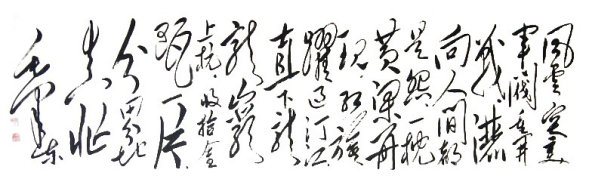 風雲突变
軍閥重開
战洒
向人间都
是怨一枕
黄粱再
现红旗
躍过汀江
直下龙
龙岩
上杭收拾金
瓯一片
分田分地
真忙
毛泽东